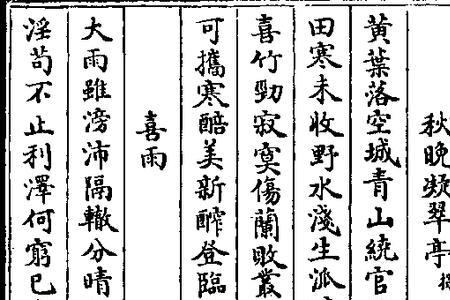 秋晚凝翠亭
黃葉落空城青山繞官
田寒未收野水淺生派
喜竹勁寂寞傷蘭敗叢
可攜寒醅美新醡登臨
喜雨
大雨雖滂沛隔轍分晴
淫苟不止利澤何窮已